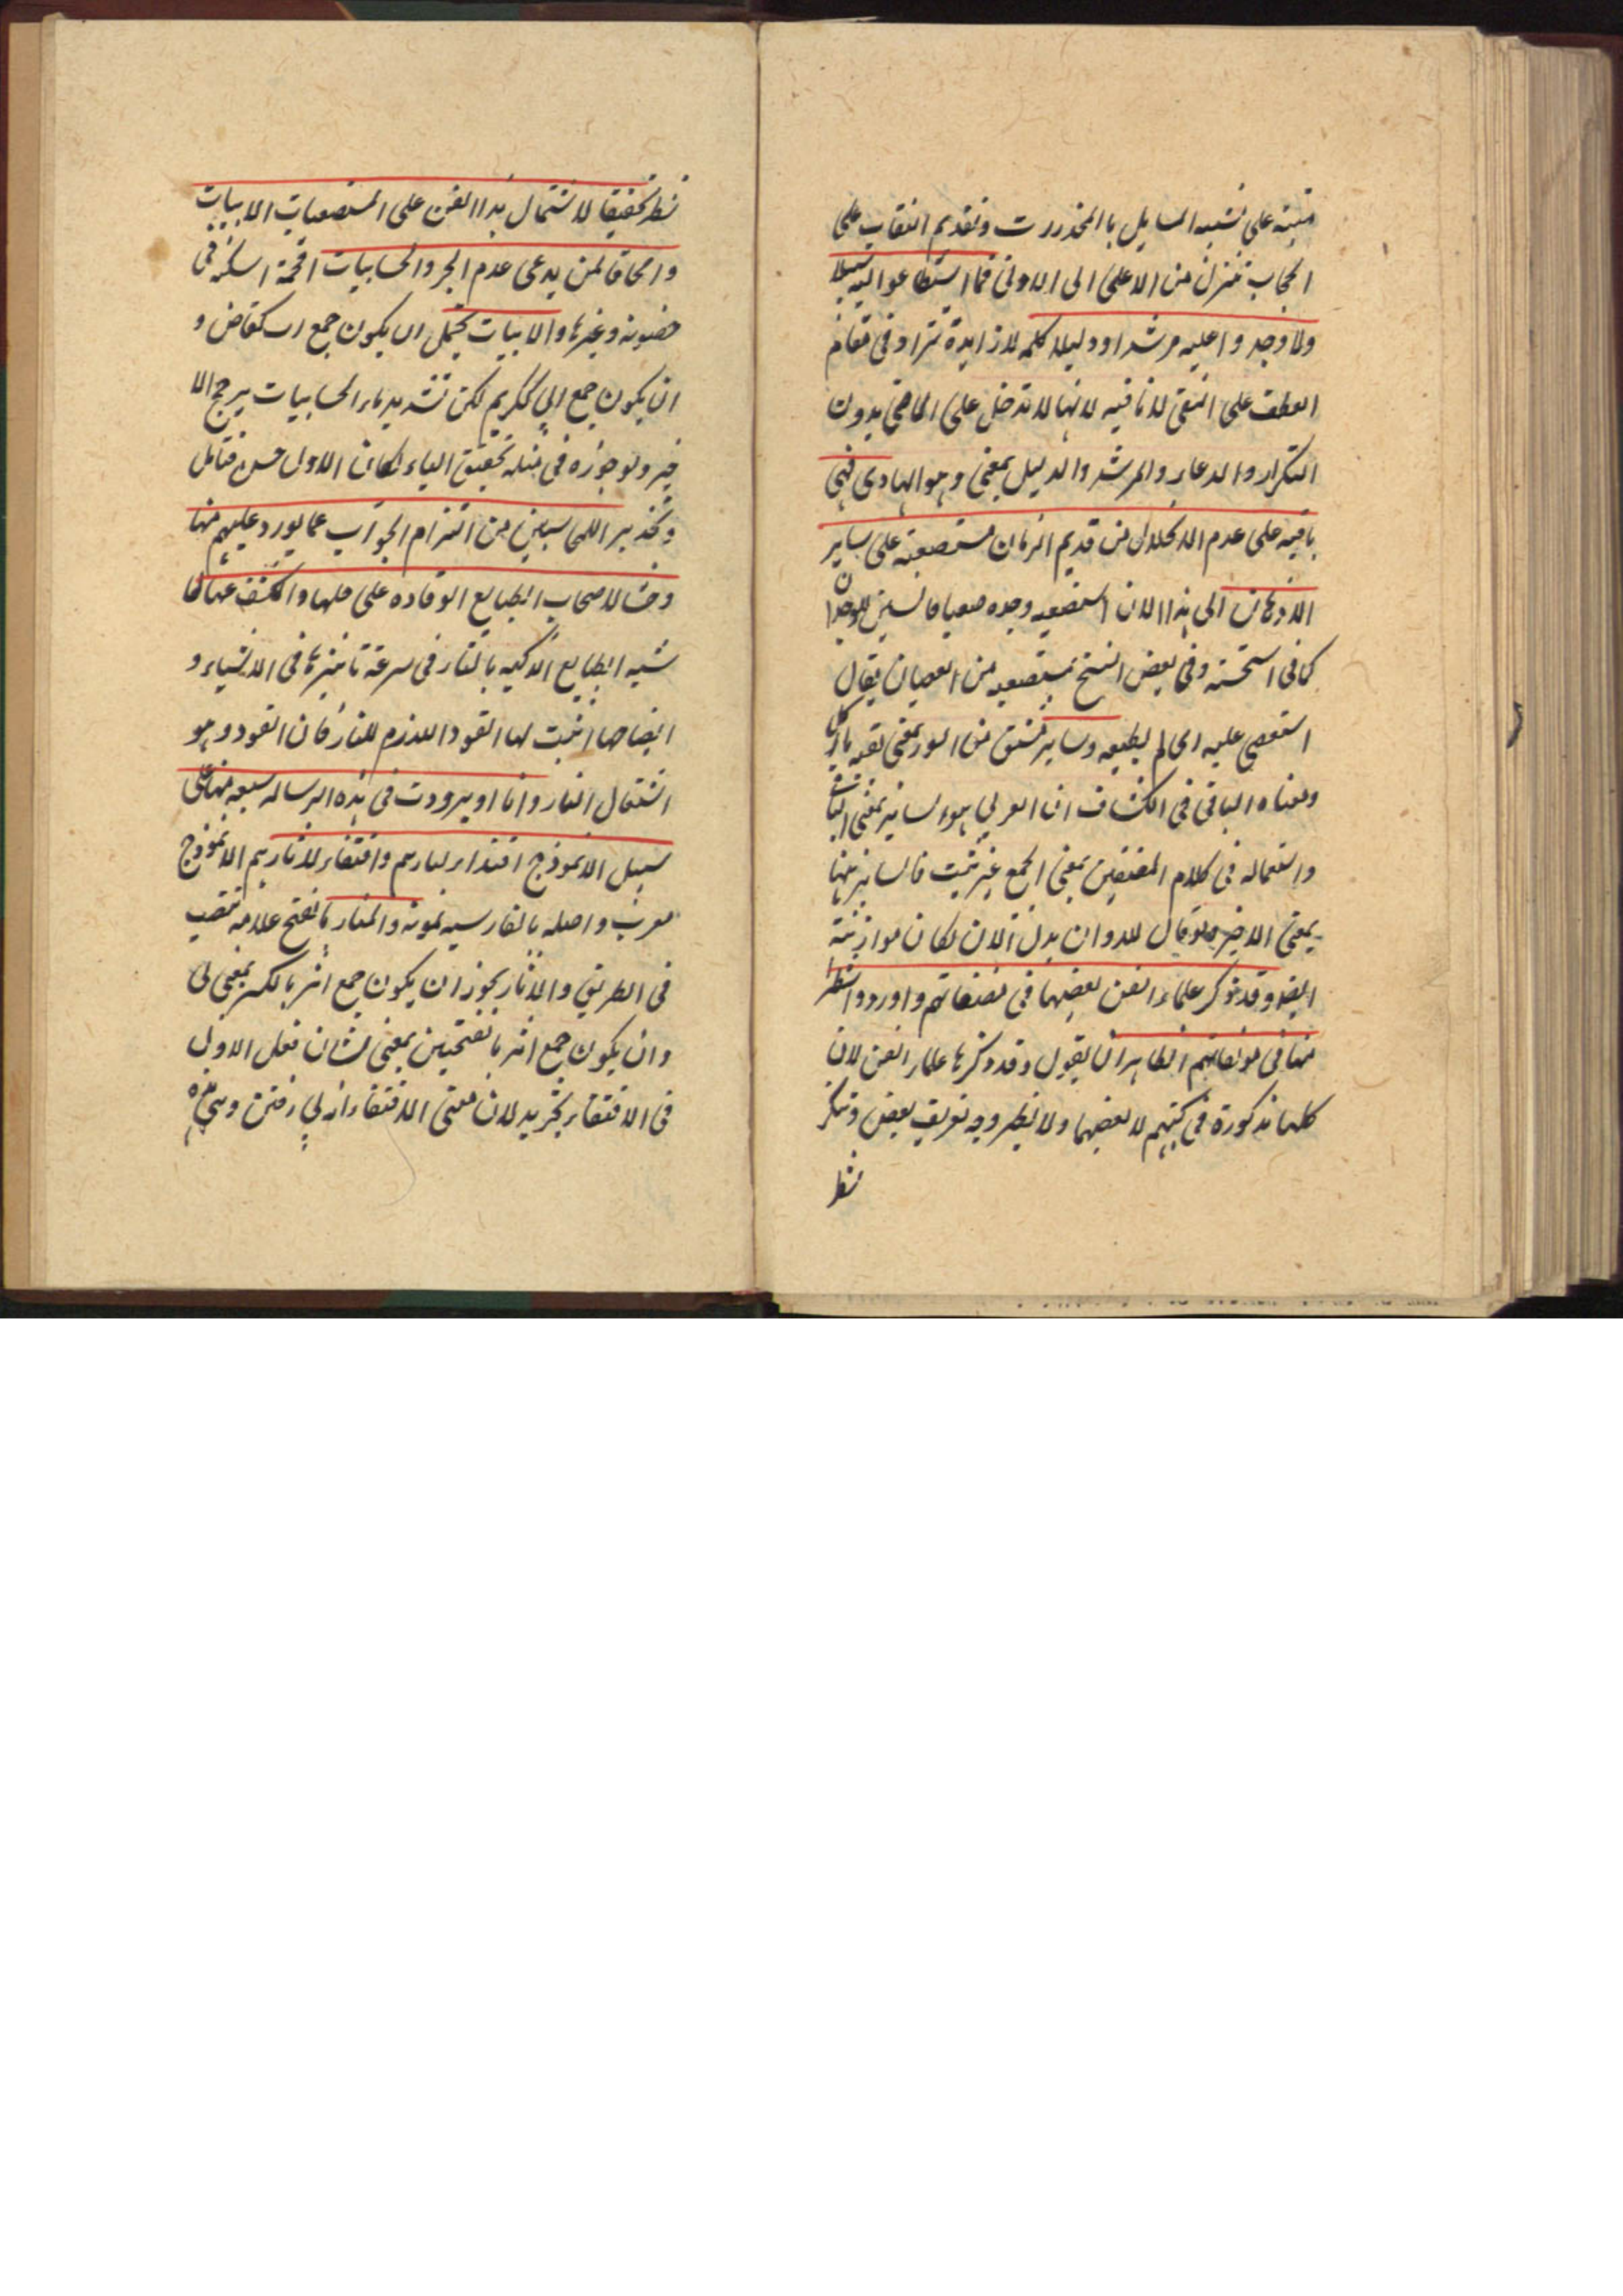 مبنية على تشبيه المسايل بالمخدرات وتقديم النقاب على
الحجاب تنزل من الاعلى الى الادنى فما استطاعوا اليه سبيلا
ولا وجدوا عليه مرشدا ودليلا كلمة لا زايدة تزاد في مقام
العطف على النفي لا نافيه لانها لا تدخل على الماضي بدون
التكرار والدعاء والمرشد والدليل بمعنى وهو الهادي فهي
باقية على عدم الانحلال من قديم الزمان مستصعبة على ساير
الاذهان الى هذا الان استصعبه وجده صعبا فالسين للوجدان
كما في استحسنه وفي بعض النسخ مستعصيه من العصيان يقال
استعصى عليه اي لم يطيعه وساير مشتق من السور بمعنى
ومعناه الباقي في الكشاف ان العربي هو ساير بمعنى الباقي
واستعماله في كلام المصنفين بمعنى الجمع غير ثبت فالساير منها
بمعنى الاخير ولو قال للاوان بدل الان لكان موازنة
ايضا وقد ذكر علماء الفن بعضها في مصنفاتهم واوردوا شطرا
منها في مؤلفاتهم الظاهر ان يقول وقد ذكرها علماء الفن لان
كلها مذكورة في كتبهم لا بعضها ولا يظهر وجه تعريف بعض وتنكر
شطر
شطر تحقيقا لاشتمال هذا الفن على المستصعبات الابيات
وامحاقا لمن يدعى عدم الجر والحسابيات اقحمة اسكنه في
خصومة وغيرها والابيات يحتمل ان يكون جمع اب كقاض و
ان يكون جمع ابي ككريم لكن تشديد ياء الحسابيات يرجح الا
خير ولو جوزه في مثله تخفيف الياء لكان الاول حسن فتامل
وتحذير اللمحاسبين من التزام الجواب عما يورد عليهم منها
وحثا لاصحاب الطبايع الوقاده على حلها والكشف عنها لما
شبه الطبايع الذكيه بالنار في سرعة تاثيرها في الاشياء و
ايضاحها اثبت لها القود اللازم للنار فان القود وهو
اشتعال النار وانا اوردت في هذه الرساله سبعه منها على
سبيل الانموذج اقتداء لمنارهم واقتفاء لاثارهم الانموذج
معرب واصله بالفارسيه نمونه والمنار بالفتح علامه تنصب
في الطريق والاثار يجوز ان يكون جمع اثر بالكسر بمعنى لى
وان يكون جمع اثر بالفتحتين بمعنى نشان فعلى الاول
في الاقتفاء تجريد لان معنى الاقتفاء از پي رفتن وهي